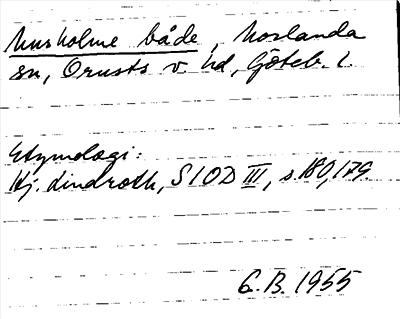 Musholme både, Morlanda
sn, Orusts v. hd, Göteb. l.
Etymologi:
Hj. Lindroth, SIOD III, s. 180, 179.
G.B. 1955